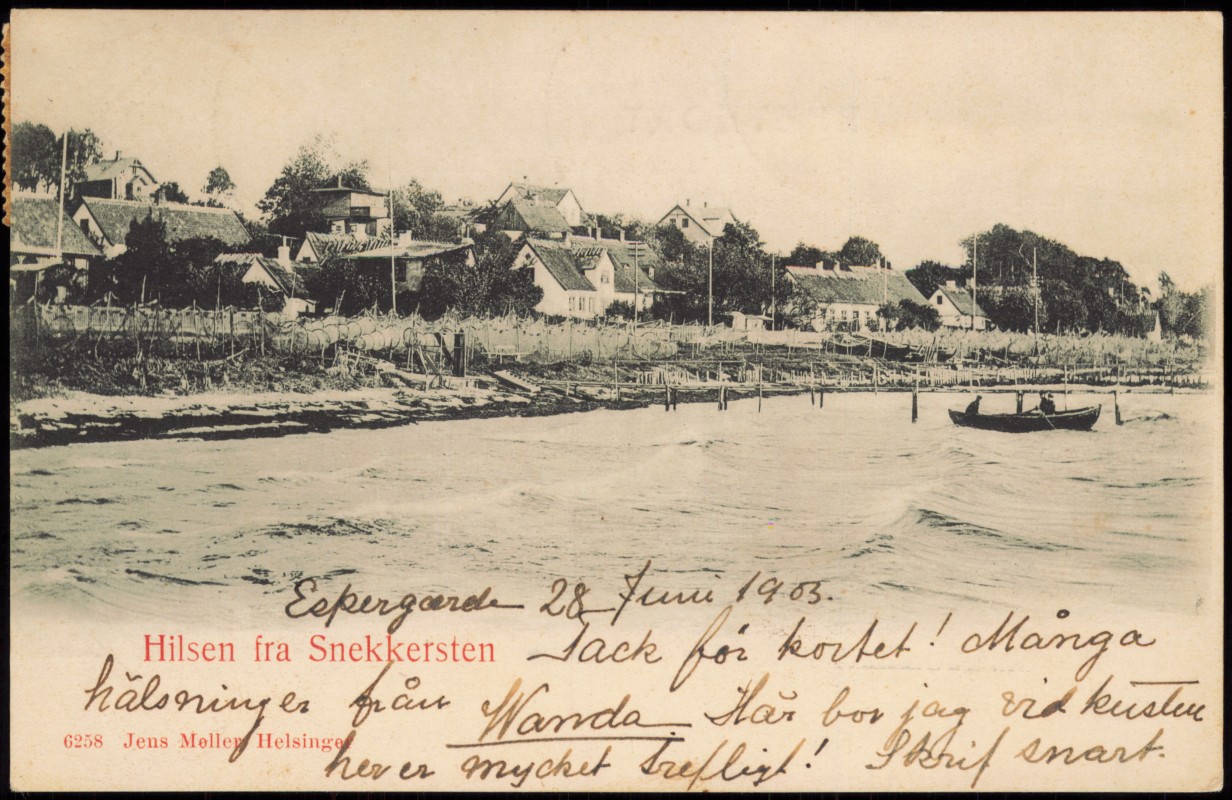 Espergærde 28 Juni 1903.
Hilsen fra Snekkersten
Tack för kortet! Många
hälsningar från Wanda Här bor jag vid kusten
6258 Jens Møller, Helsingør
her er mycket trefligt! Skrif snart.